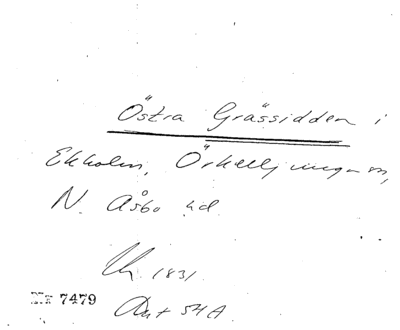 Östra Grässidden i
Ekholm, Örkelljunga sn,
N. Åsbo hd.
1831
Nr 7479
Ant 54A